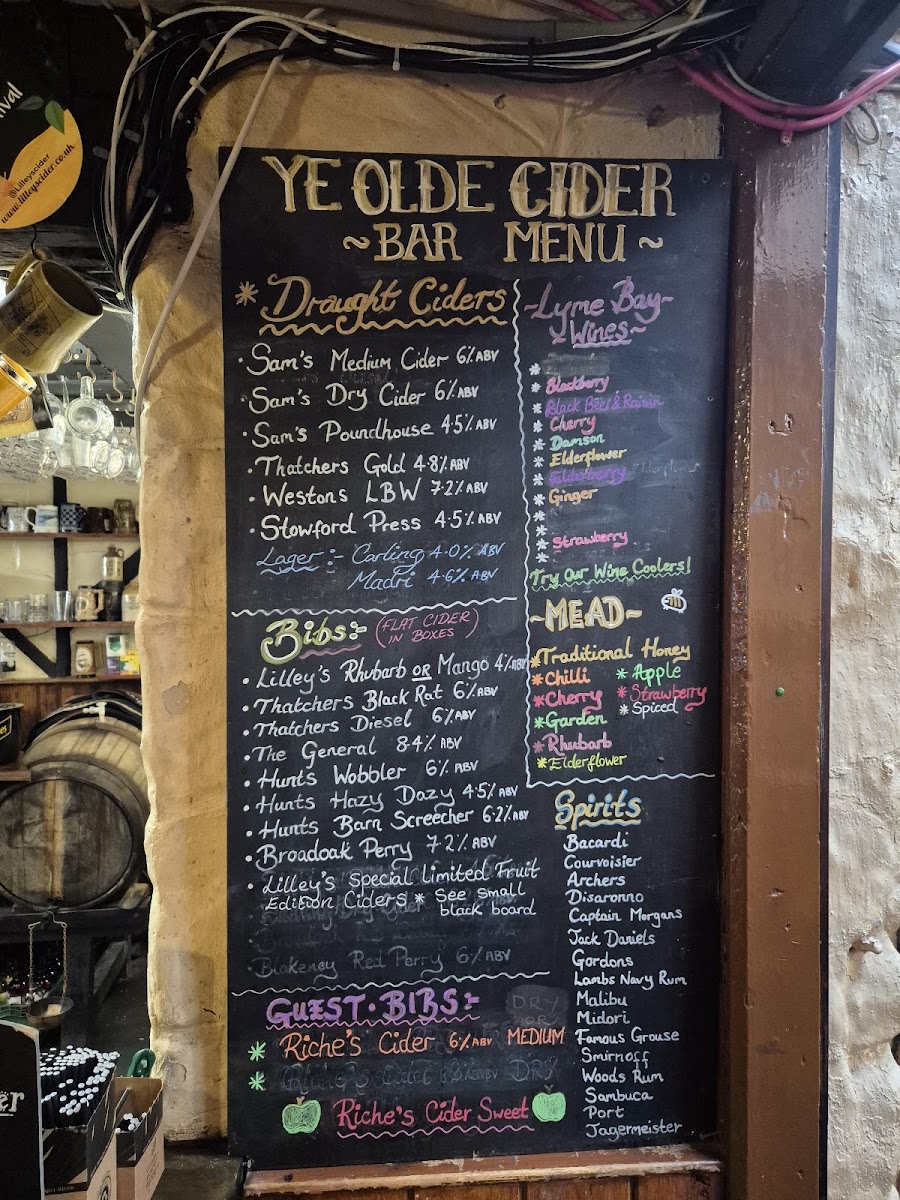 @Lilleyscider
www.lilleyscider.co.uk
YE OLDE CIDER
~BAR MENU~
* Draught Ciders
• Sam's Medium Cider 6% ABV
• Sam's Dry Cider 6% ABV
• Sam's Poundhouse 4.5% ABV
• Thatchers Gold 4.8% ABV
• Westons LBW 7.2% ABV
• Stowford Press 4.5% ABV
Lager :- Carling 4.0% ABV
Madri 4.6% ABV
Bibs:- (FLAT CIDER
IN BOXES)
• Lilley's Rhubarb OR Mango 4% ABV
• Thatchers Black Rat 6% ABV
• Thatchers Diesel 6% ABV
• The General 8.4% ABV
• Hunts Wobbler 6% ABV
• Hunts Hazy Dazy 4.5% ABV
• Hunts Barn Screecher 6.2% ABV
• Broadoak Perry 7.2% ABV
• Lilley's Special Limited Fruit
Edition Ciders * See small
black board
• Blakeney Red Perry 6% ABV
GUEST • BIBS:-
* Riche's Cider 6% ABV MEDIUM
DRY
OR
* Riche's Cider ABV DRY
Riche's Cider Sweet
~Lyme Bay~
~Wines~
*
* Blackberry
* Black Beer & Raisin
* Cherry
* Damson
* Elderflower
* Elderberry
* Ginger
*
* Strawberry
*
Try Our Wine Coolers!
~MEAD~
* Traditional Honey
* Chilli
* Cherry
* Garden
* Rhubarb
* Elderflower
* Apple
* Strawberry
* Spiced
Spirits
Bacardi
Courvoisier
Archers
Disaronno
Captain Morgans
Jack Daniels
Gordons
Lambs Navy Rum
Malibu
Midori
Famous Grouse
Smirnoff
Woods Rum
Sambuca
Port
Jagermeister